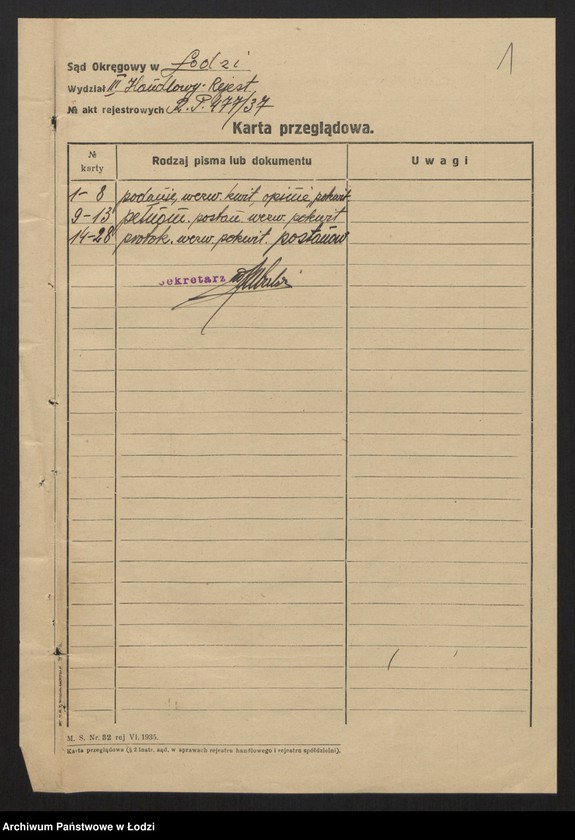 1
Sąd Okręgowy w Łodzi
Wydział III Handlowy-Rejest.
№ akt rejestrowych R.P. 477/37
Karta przeglądowa.
№ karty
Rodzaj pisma lub dokumentu
Uwagi
1-8 podanie, wezw. kwit, opinie, pokwit.
9-13 postan. wezw. pokwit
14-28 protok. wezw. pokwit. postanow
Sekretarz
M. S. Nr. 32 rej VI. 1935.
Karta przeglądowa (§ 2 instr. sąd. w sprawach rejestru handlowego i rejestru spółdzielni).
Archiwum Państwowe w Łodzi